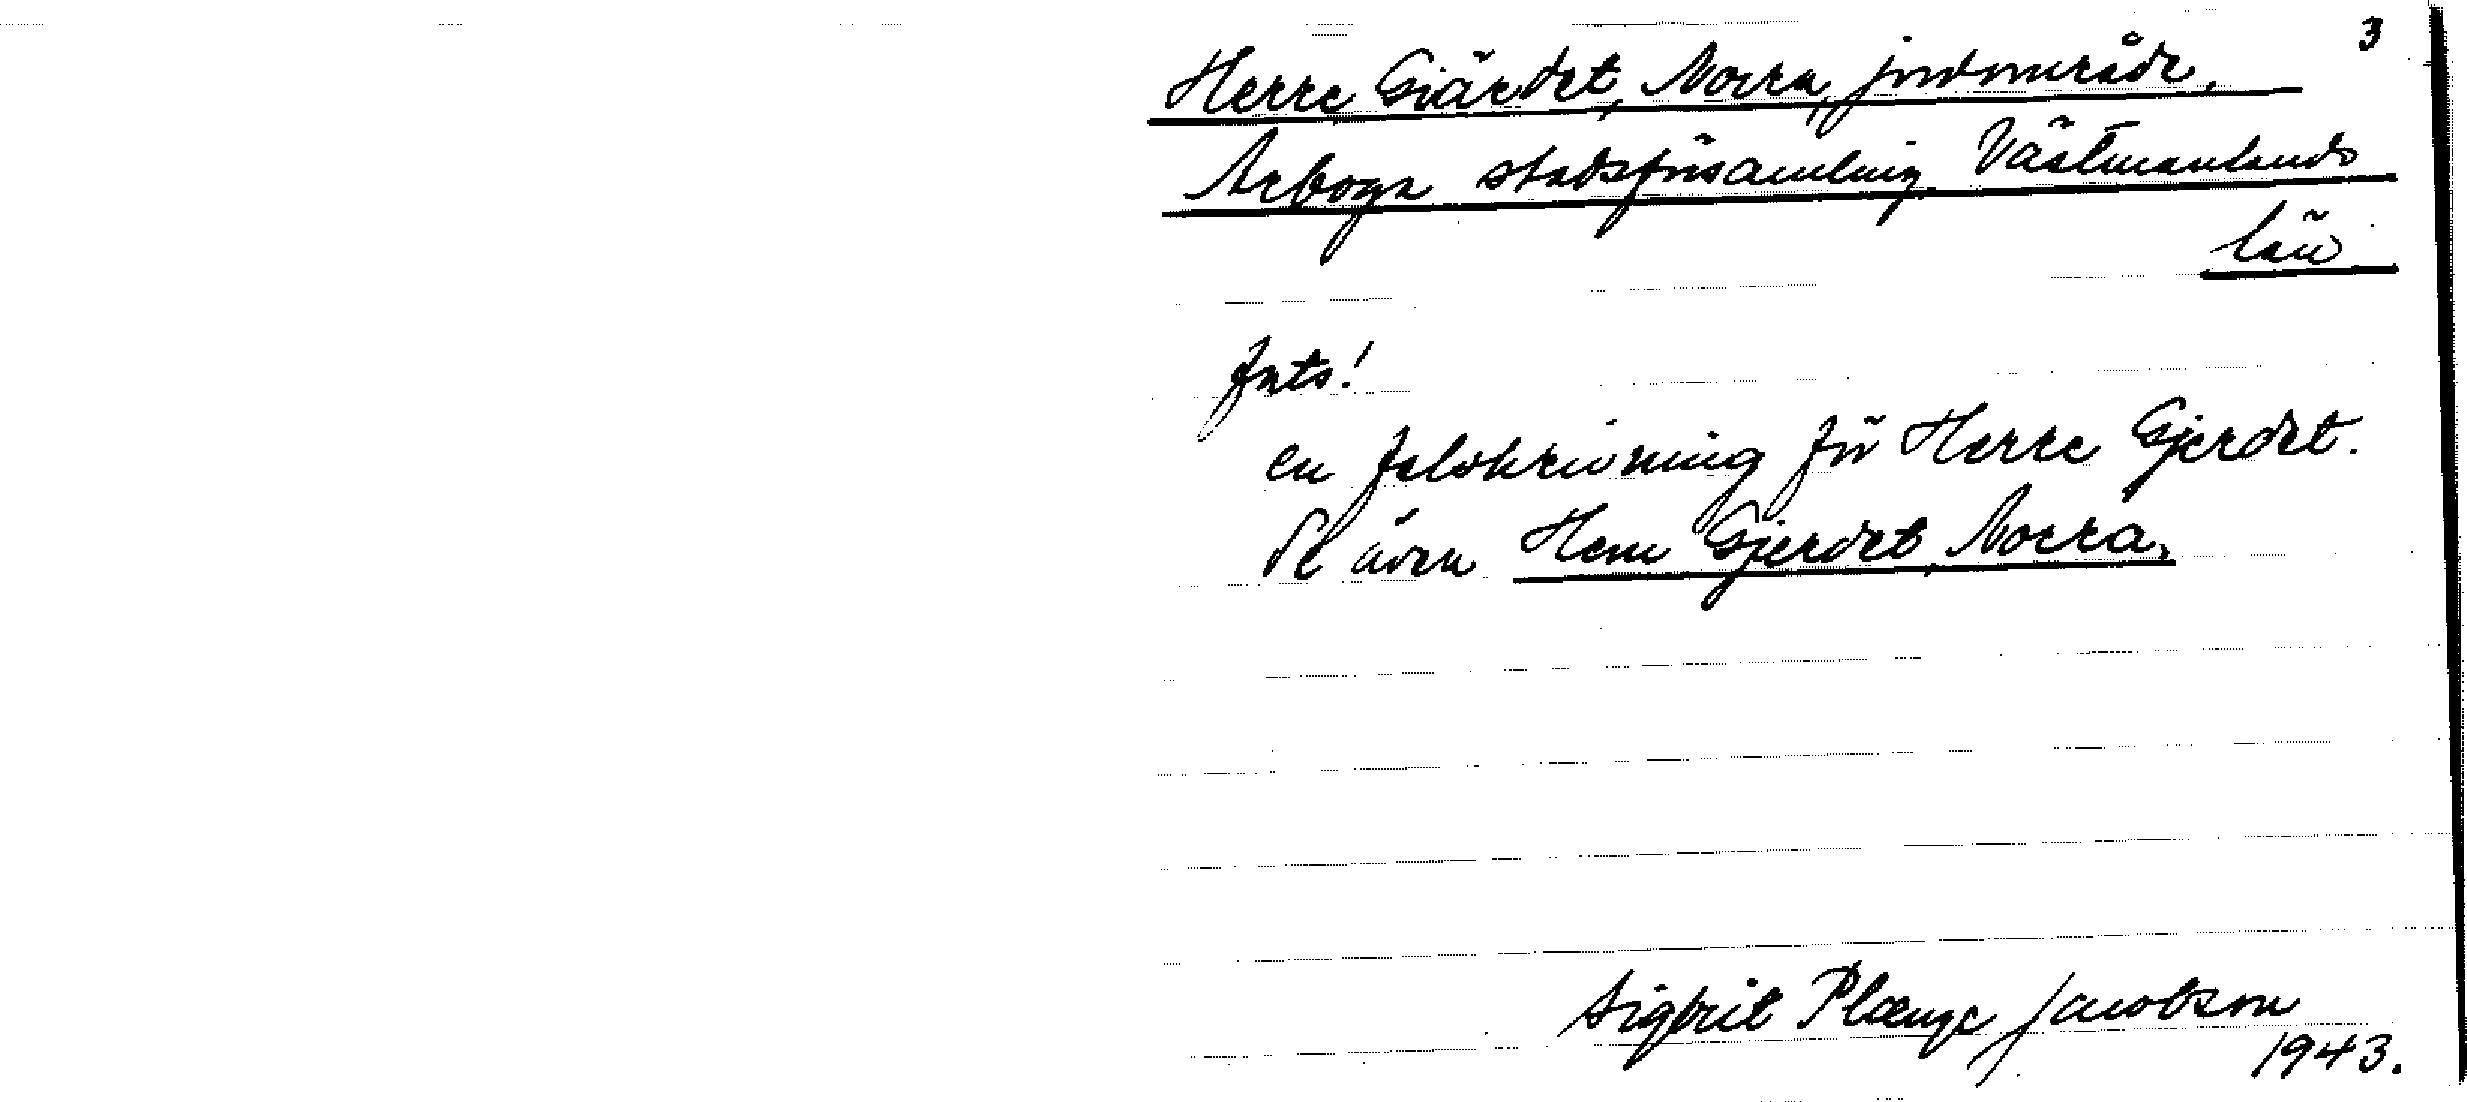 3
Herre Giärdet, Norra, jordområde,
Arboga stadsförsamling Västmanlands
län
Ints!
en felskrivning för Herre Gjerdet.
Se även Herre Gjerdet, Norra.
Sigbrit Plænge Jacobson
1943.